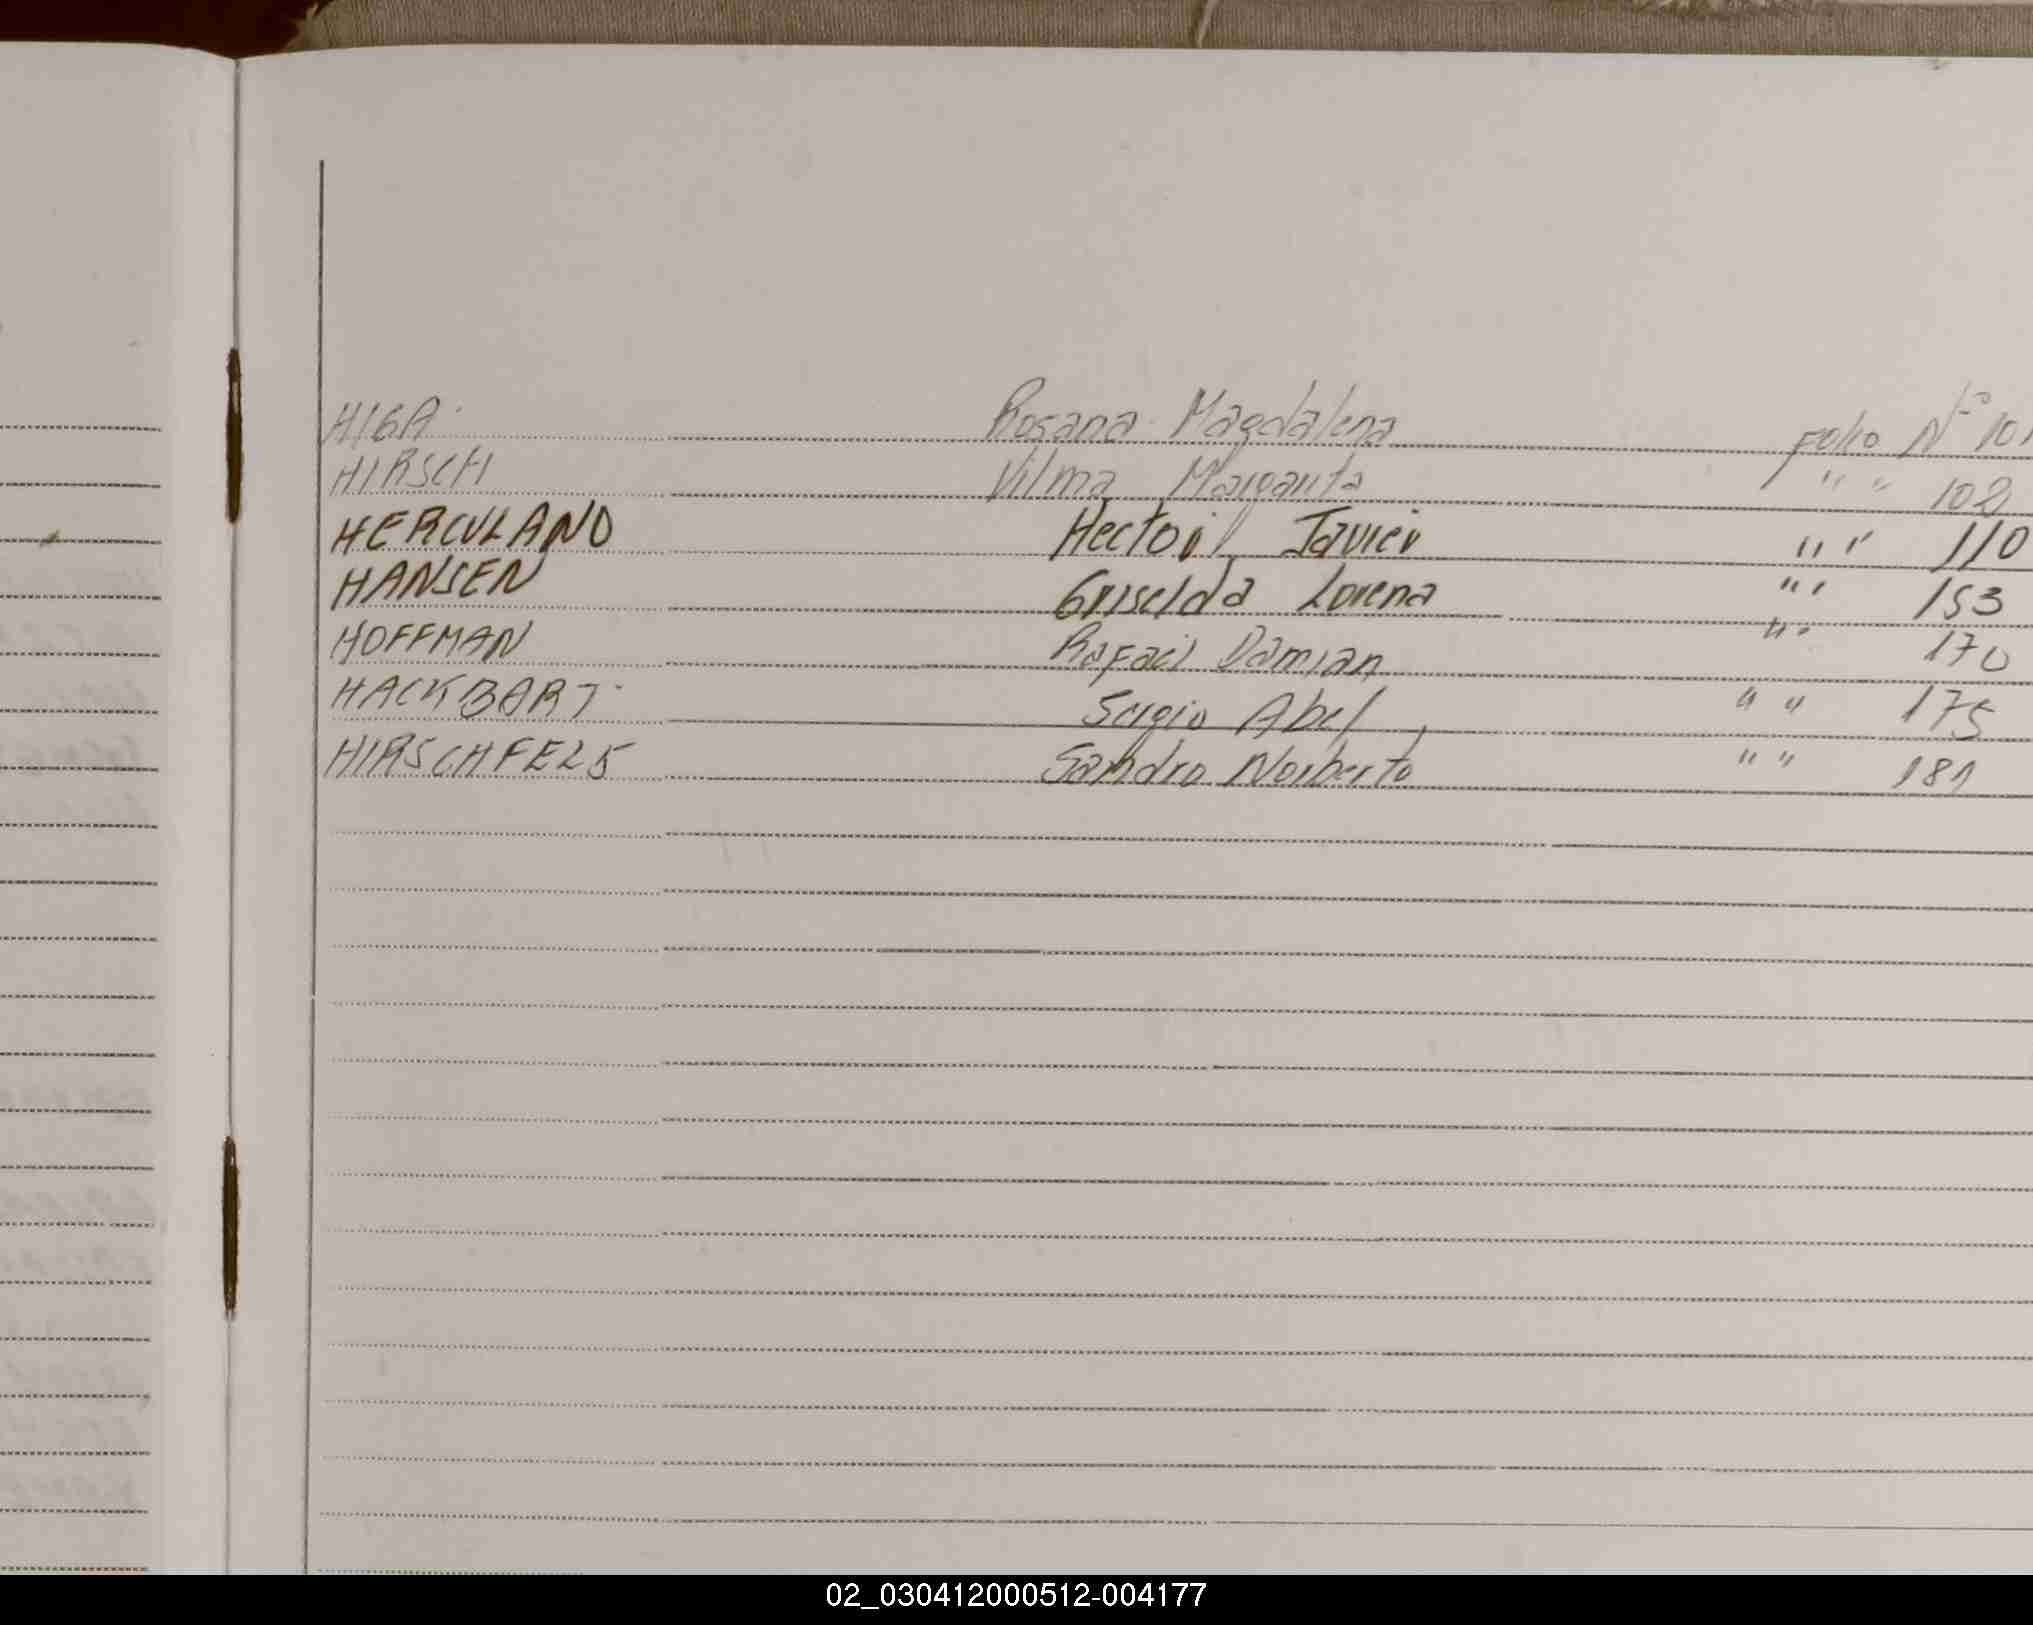 HIGA Rosana Magdalena Folio Nº 101
HIRSCH Vilma Margarita " " 102
HERCULANO Hector Javier " " 110
HANSEN Griselda Lorena " " 153
HOFFMAN Rafael Damian " " 170
HACKBART Sergio Abel " " 175
Sandro Norberto " " 181
02_030412000512-004177